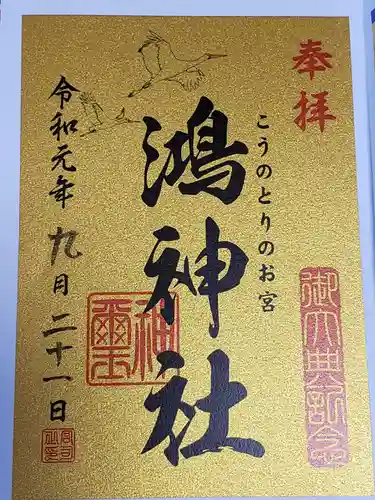 奉拝
こうのとりのお宮
鴻神社
令和元年九月二十一日
御大典記念
神璽